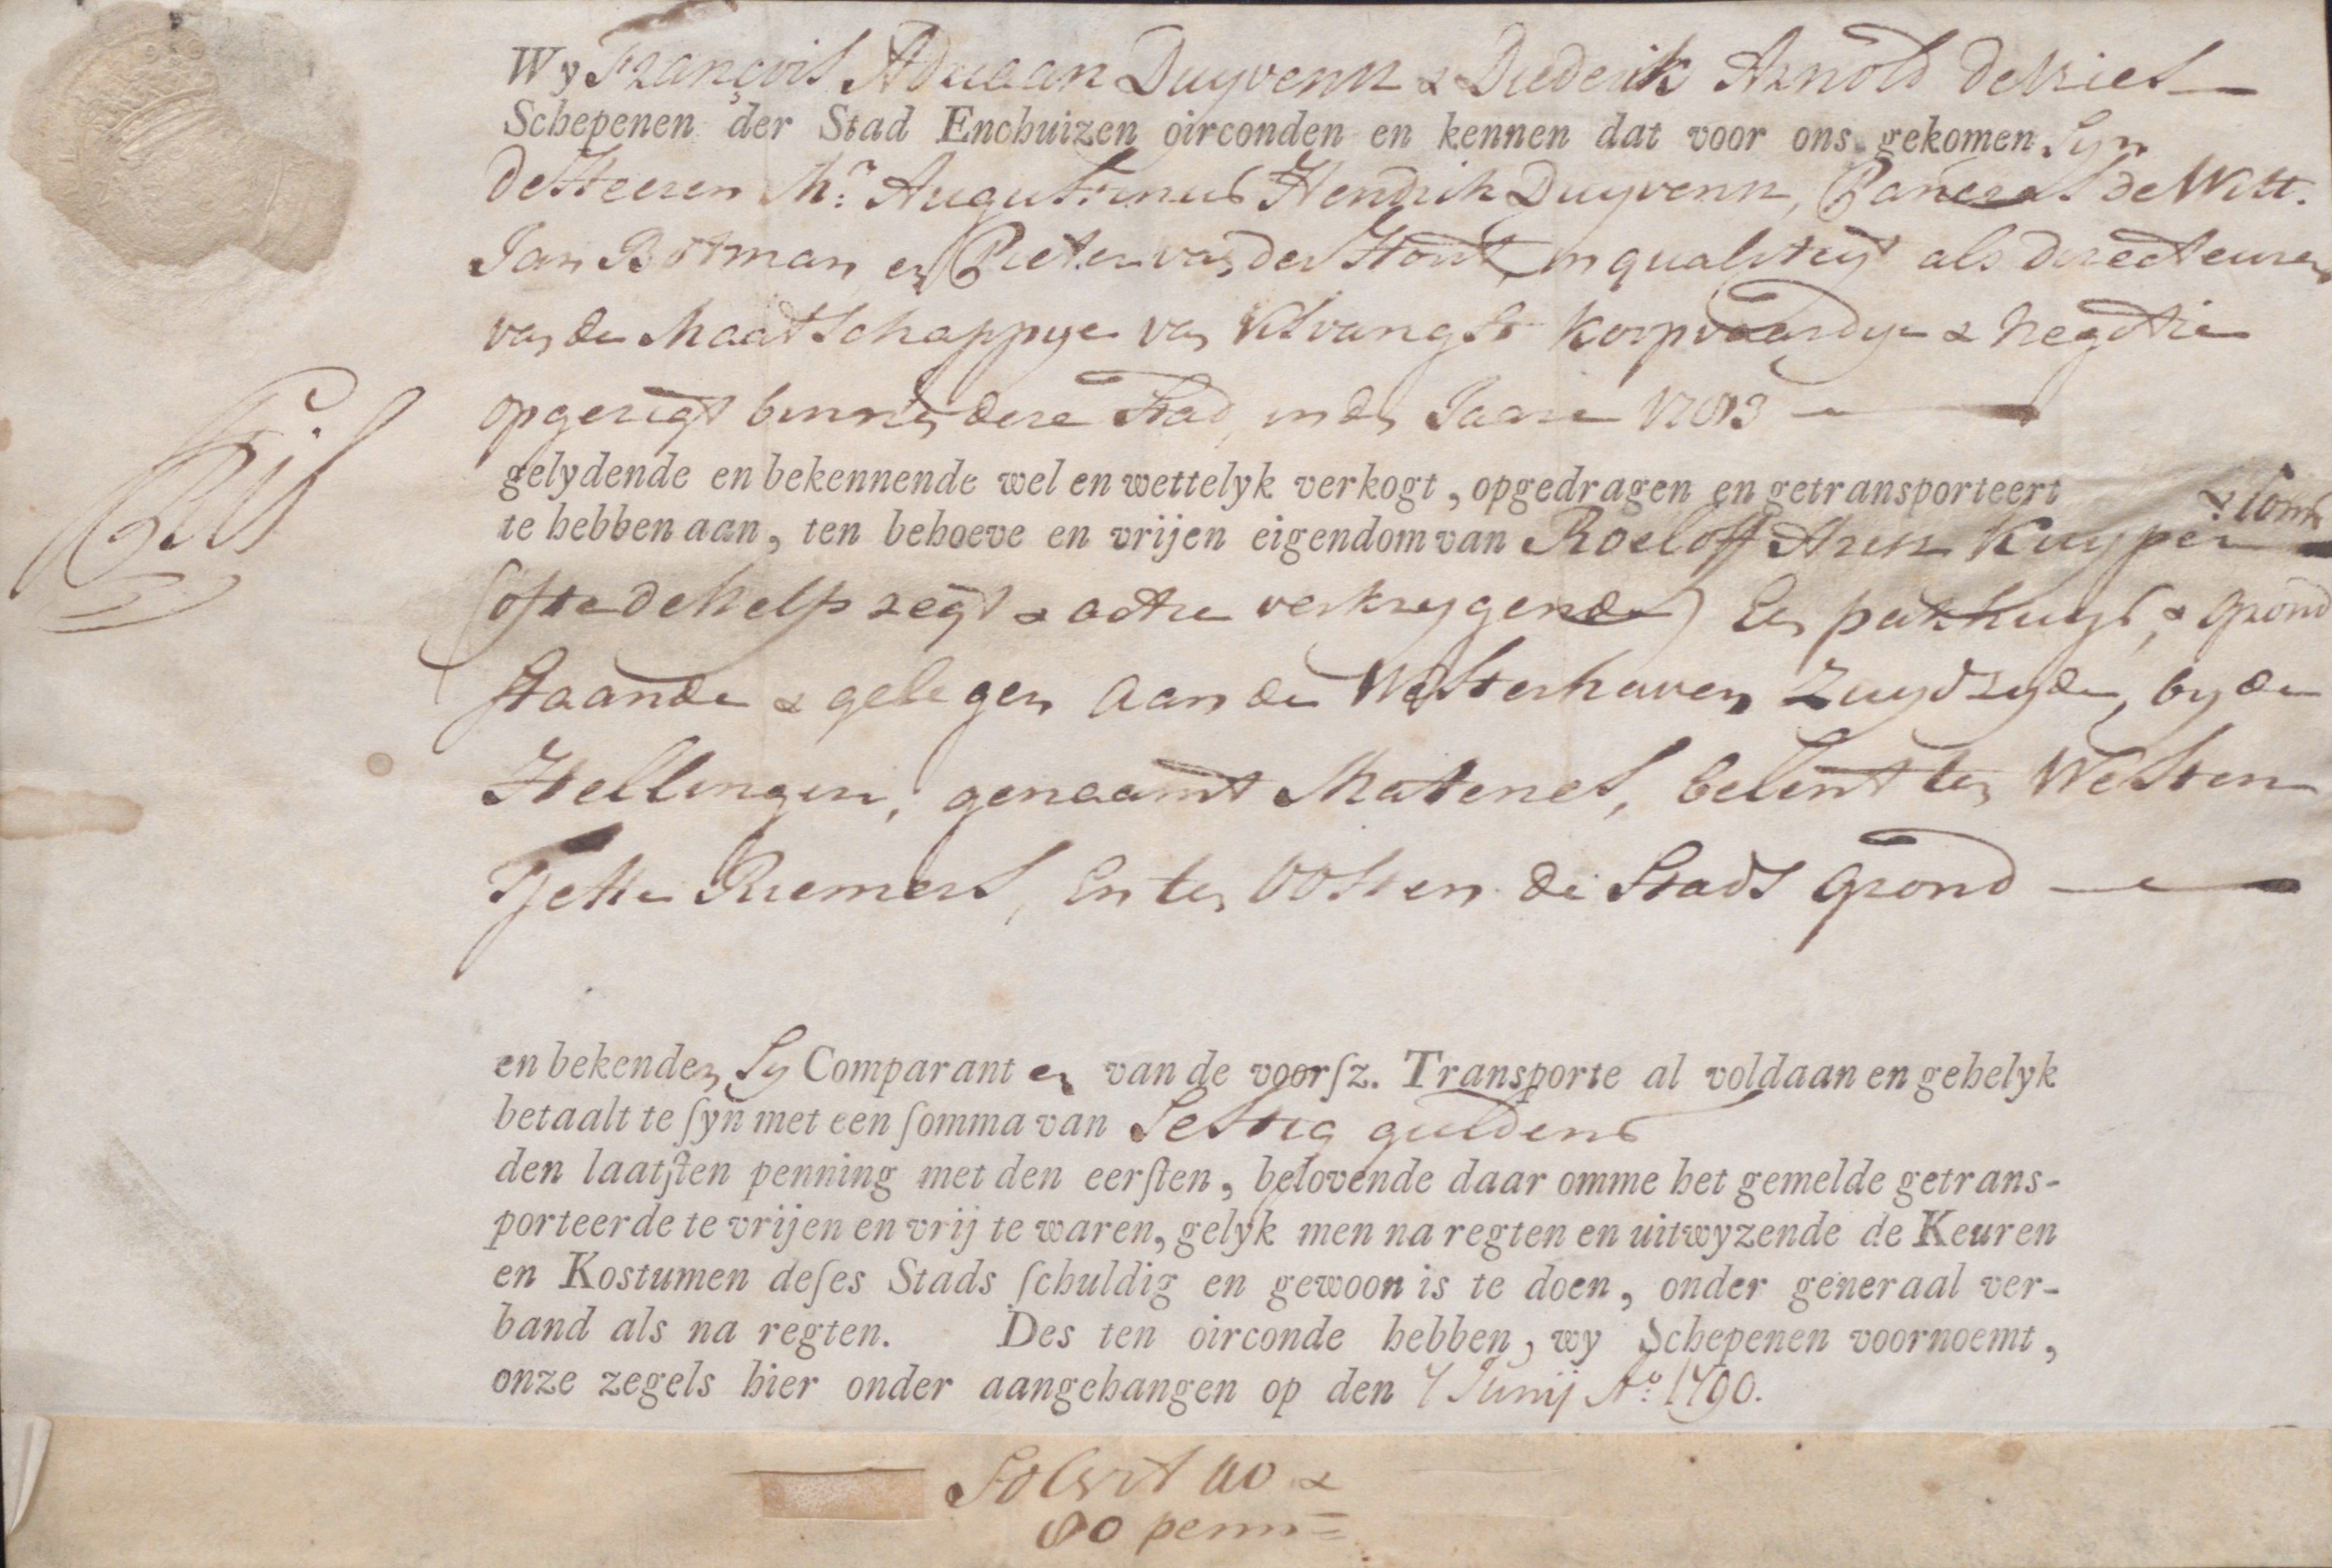 Wy François Adriaan Duyvensz & Diederik Arnold de Vries
Schepenen der Stad Enchuizen oirconden en kennen dat voor ons gekomen Syn
de Heeren Mr. Augustinus Hendrik Duyvensz, Pancras de Witt.
Jan Botman en Pieter van der Hout, in qualiteyt als directeuren
van de Maatschappye van Visvangst Koopvaardye & Negotie
opgeregt binnen dese Stad, in den Jaare 1783
gelydende en bekennende wel en wettelyk verkogt, opgedragen en getransporteert
te hebben aan, ten behoeve en vrijen eigendom van Roeloff Arisz Kuyper
ofte de helft & actie verkrygende) Een pakhuys, & grond
staande & gelegen aan de Westerhaven Zuydzyde, by de
Hellingen, genaamt Matenes, belent ten Westen
Tjette Riemers, en ten Oosten de Stads grond
en bekenden Sy Comparanten van de voorſz. Transporte al voldaan en gehelyk
betaalt te ſyn met een ſomma van Sestig guldens
den laatſten penning met den eerſten, belovende daar omme het gemelde getrans-
porteerde te vrijen en vrij te waren, gelyk men na regten en uitwyzende de Keuren
en Kostumen deſes Stads ſchuldig en gewoon is te doen, onder generaal ver-
band als na regten. Des ten oirconde hebben, wy Schepenen voornoemt,
onze zegels hier onder aangehangen op den 7 Junij Ao. 1790.
Solvit 40 &
80 penn